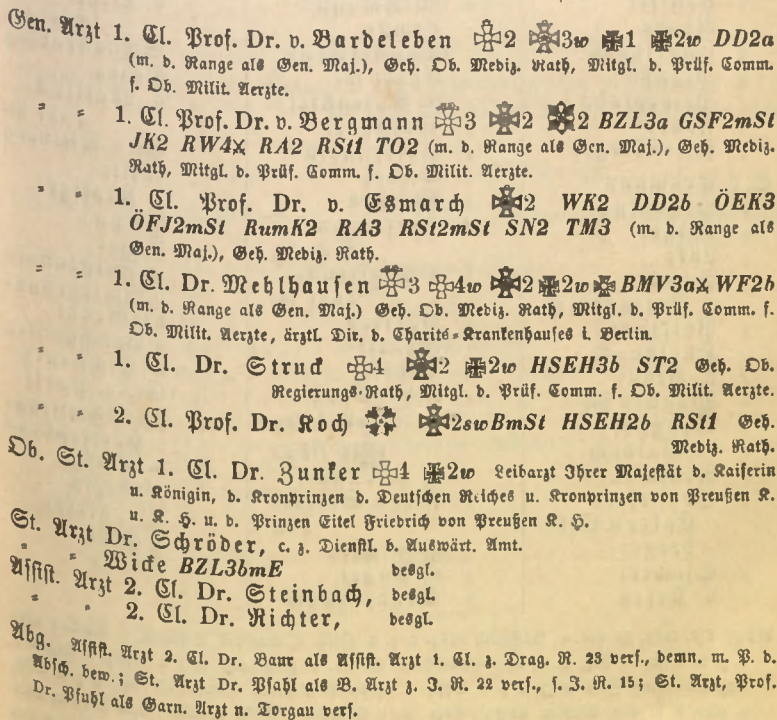 Gen. Arzt 1. Cl. Prof. Dr. v. Bardeleben 2 3w 1 2w DD2a
(m. d. Range als Gen. Maj.), Geh. Ob. Mediz. Rath, Mitgl. d. Prüf. Comm.
f. Ob. Milit. Aerzte.
" " 1. Cl. Prof. Dr. v. Bergmann 3 2 2 BZL3a GSF2mSt
JK2 RW4⚔ RA2 RSt1 TO2 (m. d. Range als Gen. Maj.), Geh. Mediz.
Rath, Mitgl. d. Prüf. Comm. f. Ob. Milit. Aerzte.
" " 1. Cl. Prof. Dr. v. Esmarch 2 WK2 DD2b ÖEK3
ÖFJ2mSt RumK2 RA3 RSt2mSt SN2 TM3 (m. d. Range als
Gen. Maj.), Geh. Mediz. Rath.
" " 1. Cl. Dr. Mehlhausen 3 4w 2 2w BMV3a⚔ WF2b
(m. d. Range als Gen. Maj.) Geh. Ob. Mediz. Rath, Mitgl. d. Prüf. Comm. f.
Ob. Milit. Aerzte, ärztl. Dir. d. Charité-Krankenhauses i. Berlin.
" " 1. Cl. Dr. Struck 4 2 2w HSEH3b ST2 Geh. Ob.
Regierungs-Rath, Mitgl. d. Prüf. Comm. f. Ob. Milit. Aerzte.
" " 2. Cl. Prof. Dr. Koch 2swBmSt HSEH2b RSt1 Geh.
Mediz. Rath.
Ob. St. Arzt 1. Cl. Dr. Zunker 4 2w Leibarzt Ihrer Majestät d. Kaiserin
u. Königin, d. Kronprinzen d. Deutschen Reiches u. Kronprinzen von Preußen K.
u. K. H. u. d. Prinzen Eitel Friedrich von Preußen K. H.
St. Arzt Dr. Schröder, c. z. Dienstl. b. Auswärt. Amt.
" " Wicke BZL3bmE desgl.
Assist. Arzt 2. Cl. Dr. Steinbach, desgl.
" " 2. Cl. Dr. Richter, desgl.
Abg. Assist. Arzt 2. Cl. Dr. Baur als Assist. Arzt 1. Cl. z. Drag. R. 23 vers., demn. m. P. d.
Absch. bew.; St. Arzt Dr. Pfahl als B. Arzt z. J. R. 22 vers., s. J. R. 15; St. Arzt, Prof.
Dr. Pfuhl als Garn. Arzt n. Torgau vers.